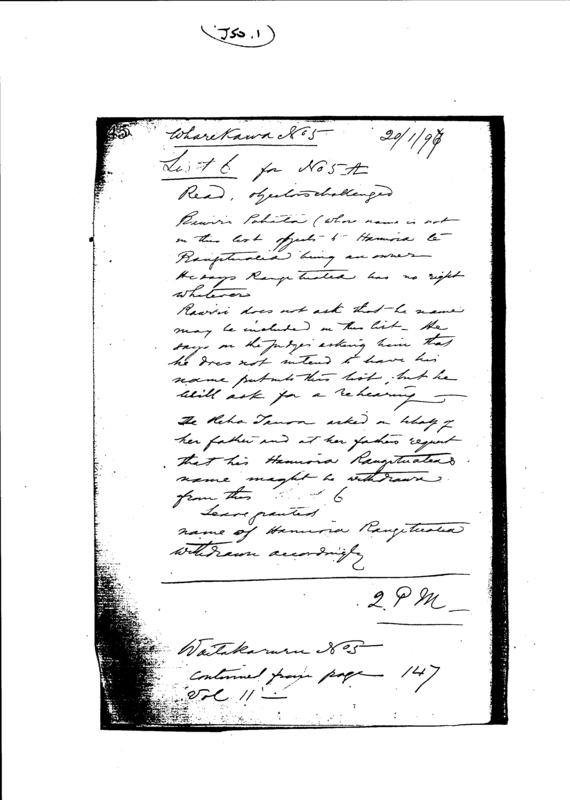 J50.1
Wharekawa No 5 20/1/96
List 6 for No 5 A
Read, objectors challenged
Rawiri (whose name is not
in this list objects to Hamiora te
Rangituatea being an owner
He says Rangituatea has no right
whatever
Rawiri does not ask that he name
may be included in this list. He
says on the judges asking him that
he does not intend to have his
name put into this list, but he
will ask for a rehearing
Te Reha asked on behalf of
her father and at her fathers request
that his Hamiora Rangituatea
name might be withdrawn
from this 6
Leave granted
name of Hamiora Rangituatea
withdrawn accordingly
2 PM
Waitakaruru No 5
continued from page 147
Vol 11